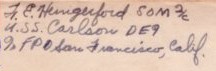 F. C. Hungerford SOM 3/c
U.S.S. Carlson DE9
℅ FPO San Francisco, Calif.